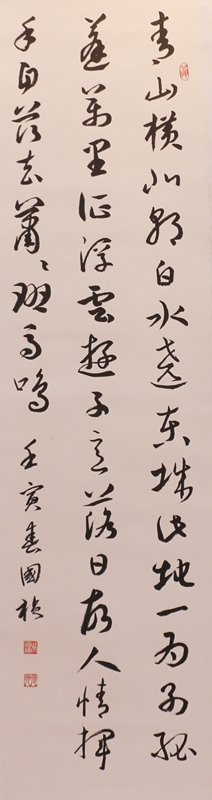 青山橫北郭白水遶東城此地一為別孤
蓬萬里征浮雲遊子意落日故人情揮
手自茲去蕭〻班馬鳴 壬寅春國